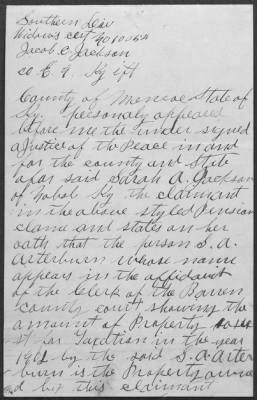 Southern Div
Widows cert
Jacob C. Jackson
co E. 9. Ky ift
County of Monroe State of
Ky. personaly appeared
before me the under signed
a Justice of the Peace in and
for the county and State
afor said Sarah A. Jackson
of Ky the claimant
in the above styled Pension
clame and states on her
oath that the person S. A.
Arterburn whose name
appears in the affidavit
of the Clerk of the Barren
county court showing the
amount of Property
st for Taxation in the year
1901 by the said S. A. Arter
burn is the Property owne
d by this claimant